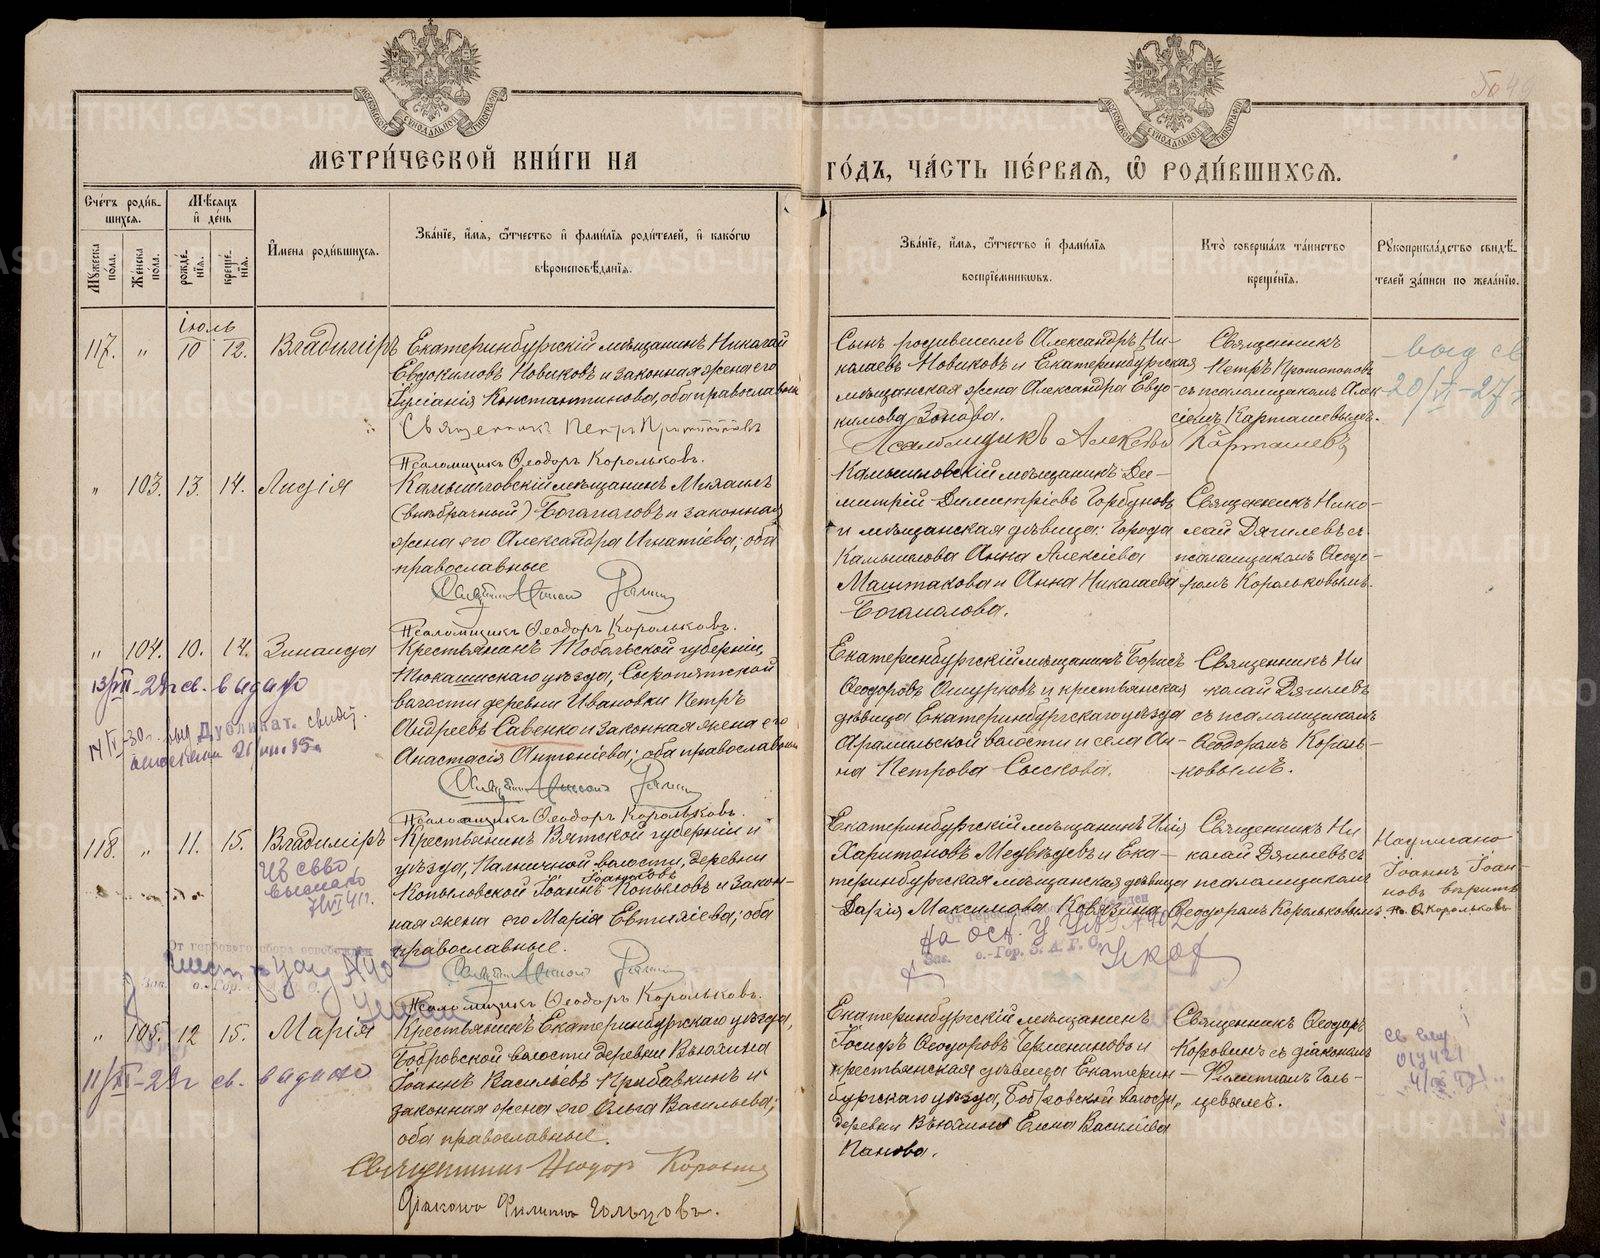 МЕТРИ́ЧЕСКОЙ КНИ́ГИ НА
ГО́ДЪ, ЧА́СТЬ ПЕ́РВАЯ, Ѽ РОДИ́ВШИХСЯ.
Сче́тъ роди́в-
шихся.
Мѣ́сяцъ
и҆ де́нь
Мꙋ́жеска по́ла.
Же́нска по́ла.
рожде́-
нїѧ.
креще́-
нїѧ.
И҆мена роди́вшихся.
Зва́нїе, и҆́мя, ѻ҆́тчество и҆ фами́лїя роди́телей, и҆ како́гѡ
вѣроисповѣ́данїя.
Зва́нїе, и҆́мя, ѻ҆́тчество и҆ фами́лїя
воспрїе́мниковъ.
Кто̀ соверша́лъ та́инство
креще́нїя.
Рꙋкоприкла́дство свидѣ́-
телей за́писи по жела́нїю.
Іюль
117. " 10 12. Владиміръ
Екатеринбургскій мѣщанинъ Николай
Евдокимовъ Новиковъ и законная жена его
Іуліанія Константинова, оба православные
Священникъ Петръ Протопоповъ
Сынъ родителей Александръ Ни-
колаевъ Новиковъ и Екатеринбургская
мѣщанская жена Александра Евдо-
кимова Зотова.
Псаломщикъ Алексѣй Карташевъ
Священникъ
Петръ Протопоповъ
съ псаломщикомъ Алек-
сіемъ Карташевымъ.
выд св
20/VI-27 г.
Псаломщикъ Ѳеодоръ Корольковъ.
" 103. 13. 14. Лидія
Камышловскій мѣщанинъ Михаилъ
(внѣбрачный) Богомоловъ и законная
жена его Александра Игнатіева; оба
православные
Камышловскій мѣщанинъ Ди-
митрій Димитріевъ Горбуновъ
и мѣщанская дѣвица: города
Камышлова Анна Алексіева
Маштакова и Анна Николаева
Богомолова.
Священникъ Нико-
лай Дягилевъ съ
псаломщикомъ Ѳеодо-
ромъ Корольковымъ.
Псаломщикъ Ѳеодоръ Корольковъ.
" 104. 10. 14. Зинаида
13/VII-28 г св. выдано
Дубликат.
Крестьянинъ Тобольской губерніи,
Тюкалинскаго уѣзда, Сыропятской
волости деревни Ивановки Петръ
Андреевъ Савенко и законная жена его
Анастасія Антоніева; оба православные
Екатеринбургскій мѣщанинъ Борисъ
Ѳеодоровъ Ошурковъ и крестьянская
дѣвица Екатеринбургскаго уѣзда
Арамильской волости и села Ан-
на Петрова Сыскова.
Священникъ Ни
колай Дягилевъ
съ псаломщикомъ
Ѳеодоромъ Король-
ковымъ.
Псаломщикъ Ѳеодоръ Корольковъ.
118. " 11. 15. Владиміръ
Крестьянинъ Вятской губерніи и
уѣзда, Пагинской волости, деревни
Іоанновъ
Копыловской Іоаннъ Копыловъ и закон-
ная жена его Марія Евтихіева; оба
православные.
Екатеринбургскій мѣщанинъ Илія
Харитоновъ Медвѣдевъ и Ека-
теринбургская мѣщанская дѣвица
Дарія Максимова Ковязина
Священникъ Ни
колай Дягилевъ съ
псаломщикомъ
Ѳеодоромъ Корольковымъ.
Надписано
Іоаннъ Іоан-
новъ вѣрить
Пс. Ѳ. Корольковъ
От гербового сбора освобожден
Псаломщикъ Ѳеодоръ Корольковъ.
" 105. 12 15. Марія
11/XI-28 г св. выдано
Крестьянинъ Екатеринбургскаго уѣзда,
Бобровской волости деревни Вьюхина
Іоаннъ Васильевъ Прибавкинъ и
законная жена его Ольга Васильева;
оба православные.
Священникъ Ѳеодоръ Коровинъ
Діаконъ Филиппъ Гольцовъ.
Екатеринбургскій мѣщанинъ
Іосифъ Ѳеодоровъ Черменинова и
крестьянская дѣвица Екатерин-
бургскаго уѣзда, Бобровской волости,
деревни Вьюхина Елена Василіева
Панова.
Священникъ Ѳеодоръ
Коровинъ съ діакономъ
Филиппомъ Голь-
цевымъ.
METRIKI.GASO-URAL.RU